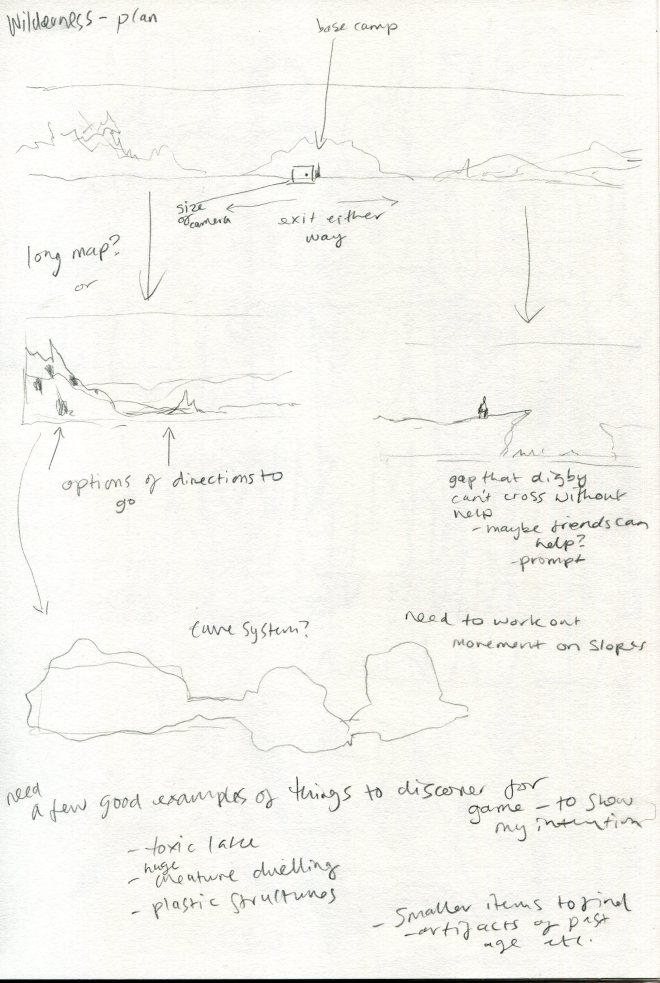 Wilderness - plan
base camp
size
of camera
exit either
way
long map?
or
options of directions to
go
gap that digby
can't cross without
help
- maybe friends can
help?
- prompt
cave system?
need to work out
movement on slopes
need
a few good examples of things to discover for
game - to show
my intention
- toxic lake
huge
- creature dwelling
- plastic structures
- smaller items to find
- artifacts of past
age etc.